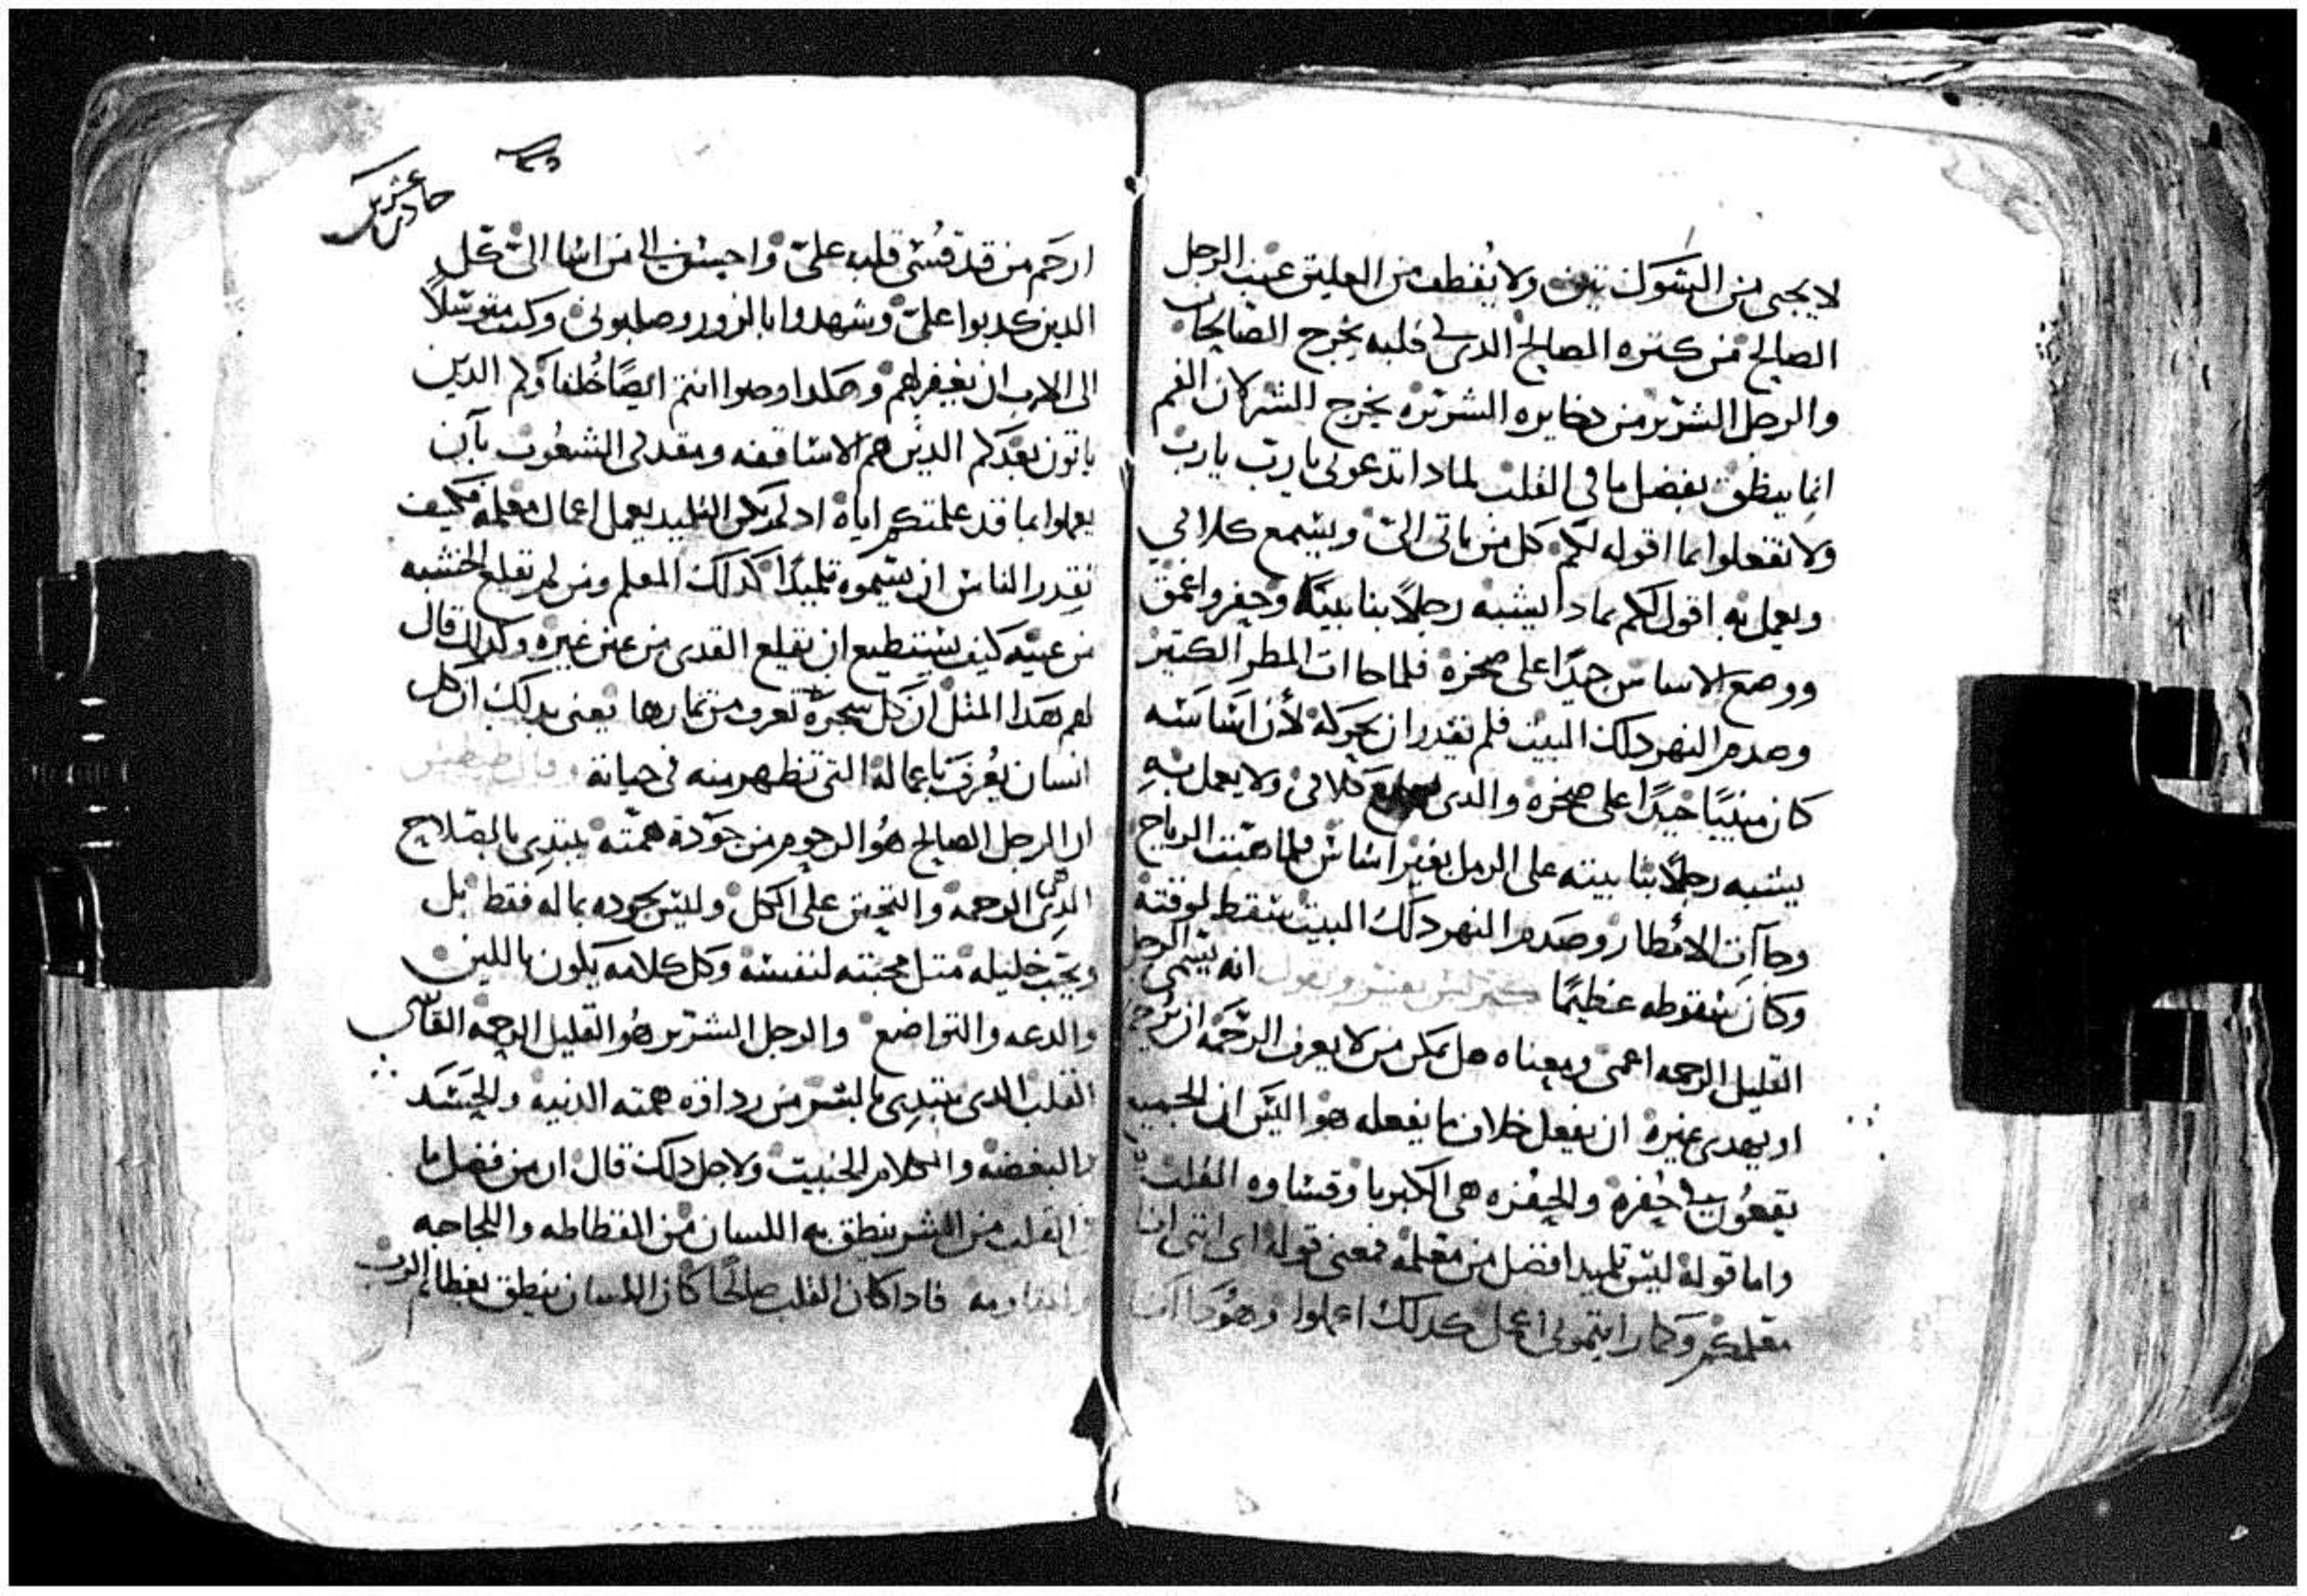 لا يجنى من الشوك تين ولا يقطف من العليق عنب الرجل
الصالح من كنزه الصالح الدى فى قلبه يخرج الصالحات
والرجل الشرير من دخايره الشريره يخرج الشر لان الفم
انما ينطق بفضل ما فى القلب لمادا تدعونى يارب يارب
ولا تفعلوا بما اقوله لكم كل من ياتى الىّ ويسمع كلامي
ويعمل به اقول لكم بمادا يشبه رجلاً بنا بيتاً وحفر واعمق
ووضع الاساس جيدًا على صخره فلما جاات المطر الكتير
وصدم النهر دلك البيت فلم يقدر ان يحركه لأن اساسه
كان مبنيًا جيدًا على صخره والدى يسمع كلامى ولا يعمل به
يشبه رجلاً بنا بيته على الرمل بغير اساس فلما هبت الرياح
وجاآت الامطار وصدم النهر دلك البيت سقط لوقته
وكان سقوطه عظيمًا كيرلس يفسر ويقول انه يسمى الرجل
القليل الرحمه اعمى ومعناه هل يمكن من لا يعرف الرحمه ان يرحم
او يهدى غيره ان يفعل خلاف ما يفعله هو اليس ان الجميع
يقعون فى حفره والحفره هى الكبريا وقساوه القلب
واما قوله ليس تلميد افضل من معلمه فمعنى قوله اى اننى انا
معلمكم وكما رايتمونى اعمل كدلك اعملوا وهودا انا
ارحم من قد قسّى قلبه علىّ واحسن الى من اسا الىّ كل
الدين كدبوا علىّ وشهدوا بالزور وصلبونى وكنت متوسلاً
الى الاب ان يغفر لهم وهكدا وصوا انتم ايضًا خلفاوكم الدين
ياتون بعدكم الدين هم الاساقفه ومقدمى الشعوب بآن
يعملوا بما قد علمتكم اياه اد لم يكن التلميد يعمل اعمال معلمه فكيف
يقدر الناس ان يسموه تلميدًا كدلك المعلم ومن لم يقلع الخشبه
من عينه كيف يستطيع ان يقلع القدى من عين غيره وكدلك قال
لهم هدا المتل ان كل شجره تعرف من تمارها يعنى بدلك ان كل
انسان يعرف باعماله التى تظهر منه فى حياته وقال طيطس
ان الرجل الصالح هو الرحوم من جوده همته يبتدى بالصلاح
الدى هى الرحمه والتحنن على الكل وليس بجوده بماله فقط بل
ويحب خليله متل محبته لنفسه وكل كلامه يكون باللين
والدعه والتواضع والرجل الشرير هو القليل الرحمه القاسى
القلب الدى يبتدى بالشر من رداوة همته الدنيه والحسد
والبغضه والكلام الخبيت ولاجل دلك قال ان من فضل ما
فى القلب من الشر ينطق به اللسان من الفظاظه واللجاجه
والمقاومه فادا كان القلب صالحًا كان اللسان ينطق بعظايم الرب